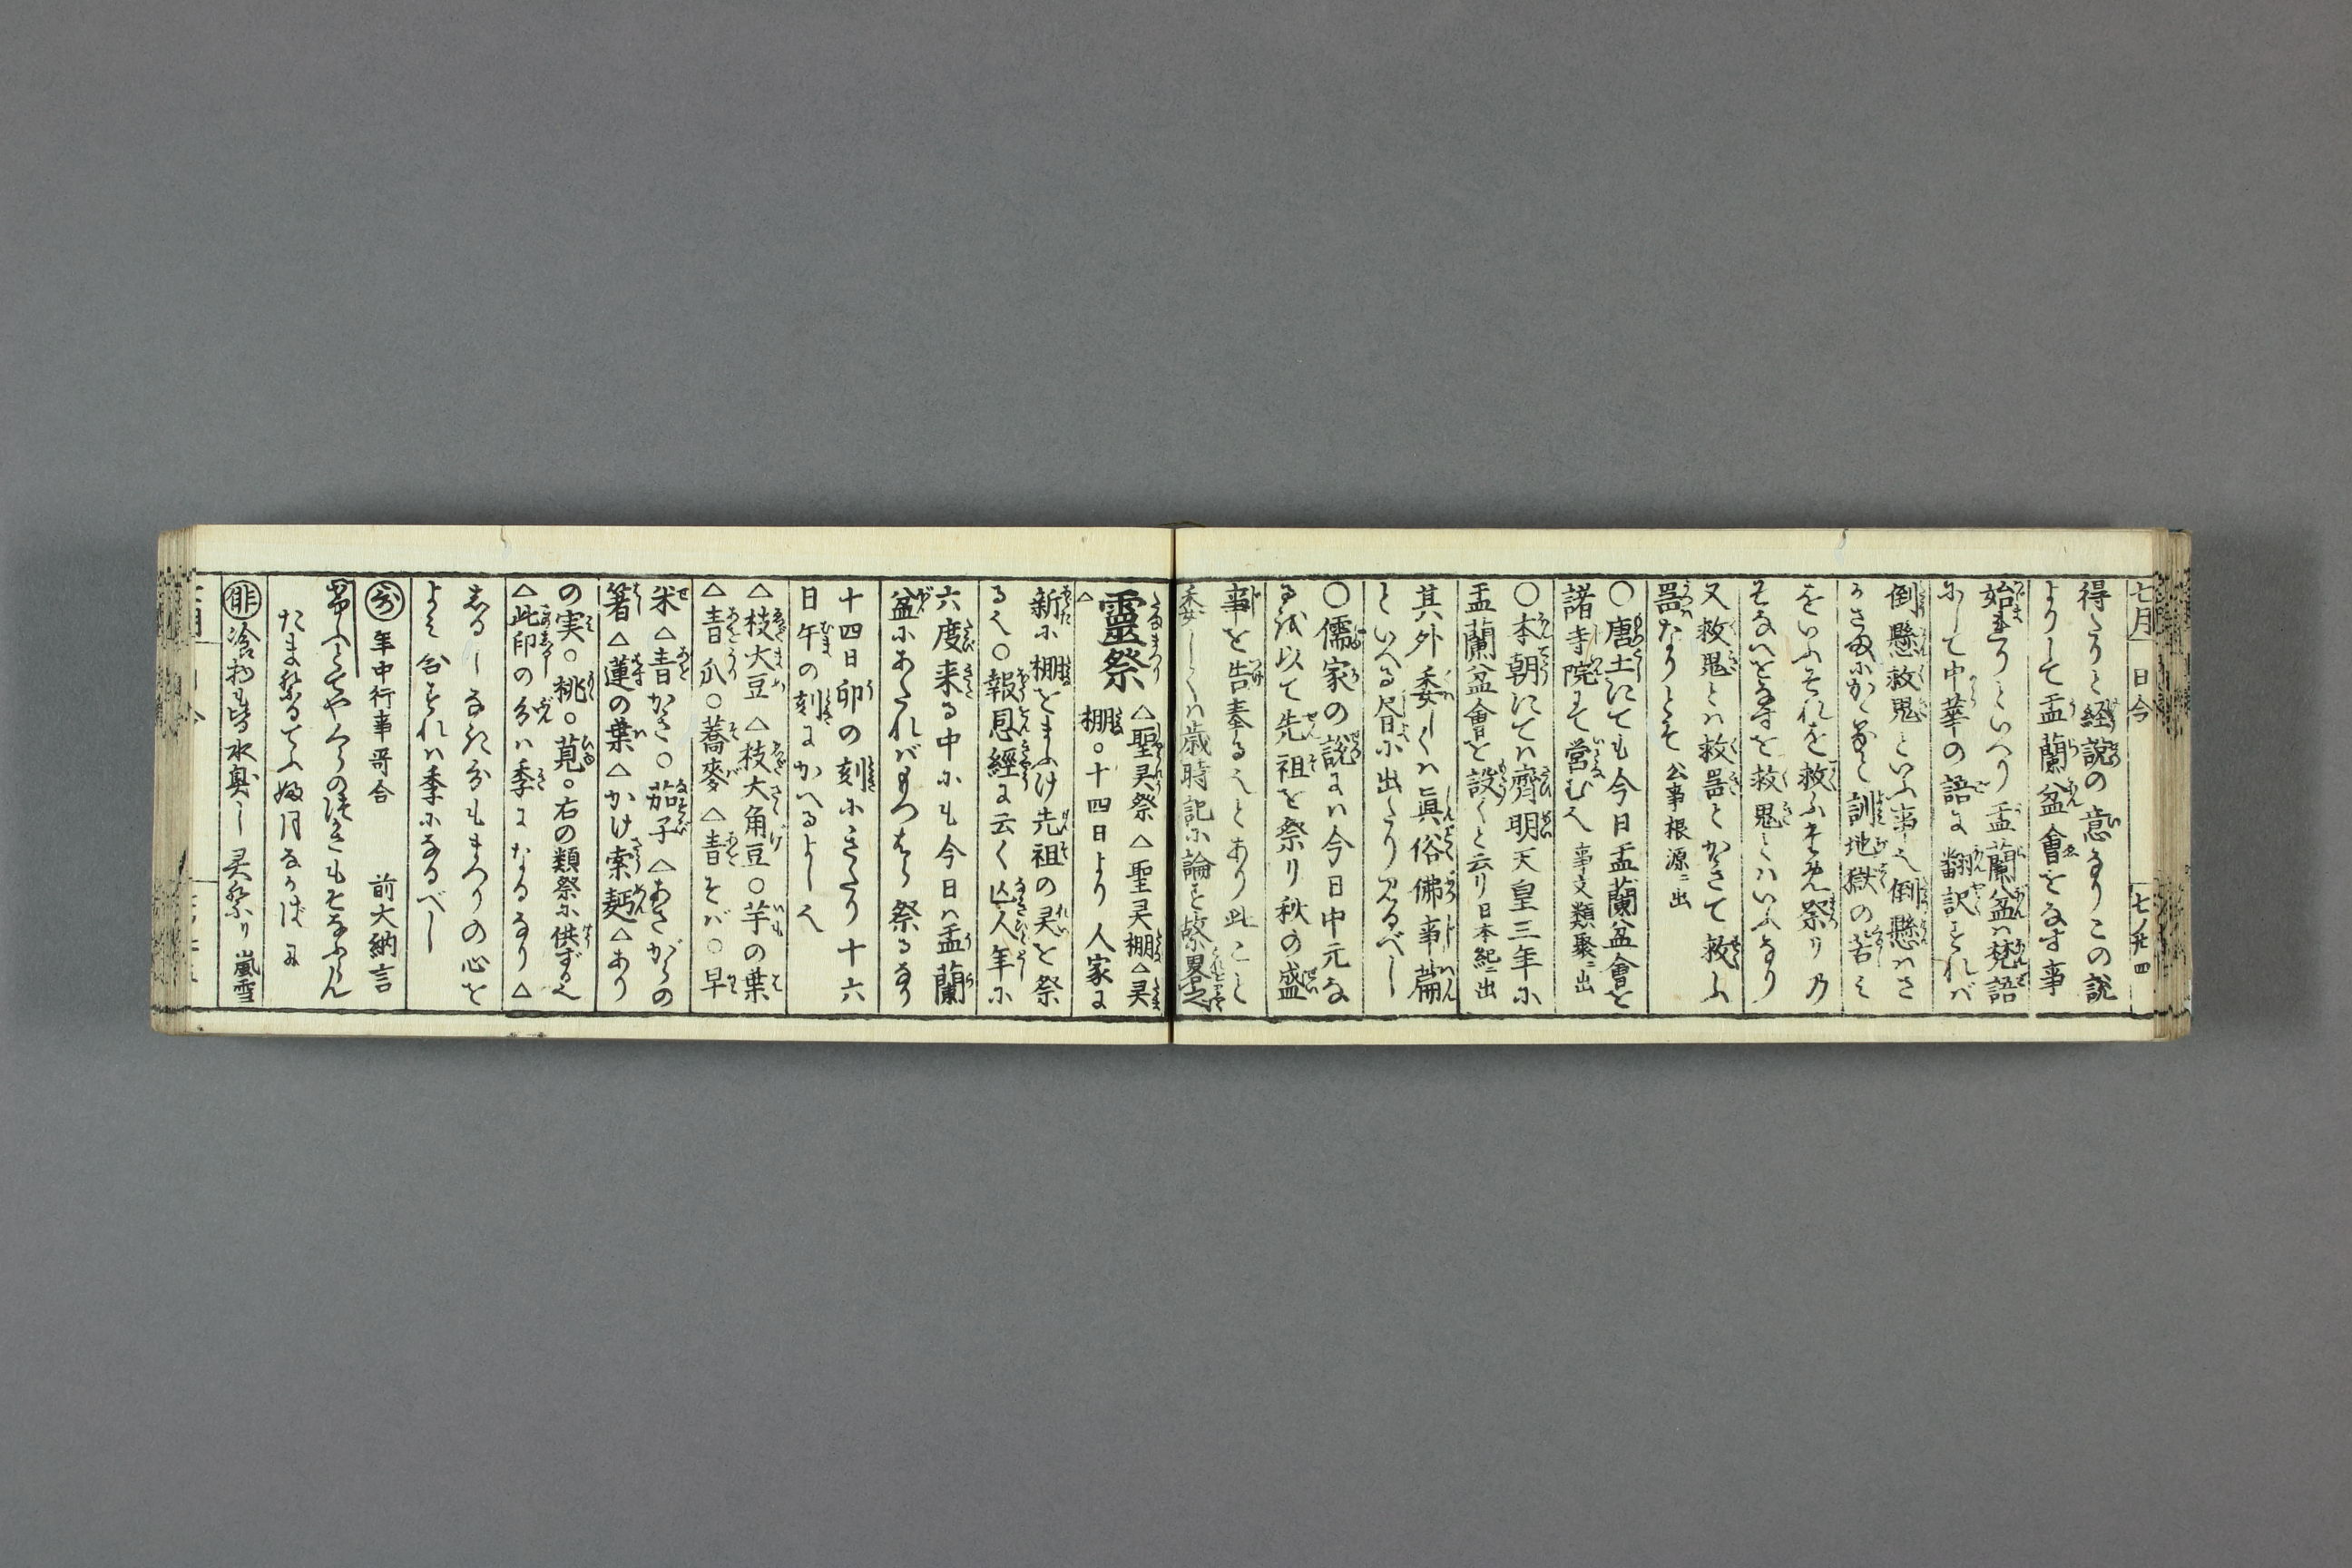 七月 日令 七ノ廿四
得たりと経説の意なりこの説
よりして盂蘭盆會をなす事
始まりといへり盂蘭盆ハ梵語
にして中華の語に翻訳すれバ
倒懸救鬼といふ事也倒懸ハさ
かさまにかゝると訓地獄の苦し
をいふそれを救ふすくひ祭り乃
そなへをなすを救鬼とハいふなり
又救鬼とハ救噐とかきて救ふ
噐なりとそ 公事根源ニ出
〇唐土にても今日盂蘭盆會を
諸寺院にて営む也 事文類聚ニ出
〇本朝にてハ齊明天皇三年に
盂蘭盆會を設くと云リ 日本紀ニ出
其外委しくハ眞俗佛事篇
といへる昏に出たり見るべし
〇儒家の説にハ今日中元な
る故以て先祖を祭リ秋の盛
事を告奉る也とあり此こと
委しくハ歳時記に論を畧之
靈祭 △聖灵祭 △聖灵棚△灵
△ 棚〇十四日より人家に
新に棚をまふけ先祖の灵を祭
る也〇報恩經に云く亡人年に
六度来る中にも今日ハ盂蘭
盆にあたれバもつはら祭るなり
十四日卯の刻にきたり十六
日午の刻にかへるよし也
△枝大豆 △枝大角豆〇芋の葉
△青瓜〇蕎麥 △青そバ〇早
米△青かき〇茄子△あさがらの
箸△蓮の葉△かけ索麪△あり
の実〇桃〇莧〇右の類祭に供ずる也
△此印の分ハ季になるなり△
志るしなき分もまつりの心を
よミ合すれハ季になるべし
哥 年中行事哥合 前大納言
たま祭るてふ
俳 灵祭り 嵐雪